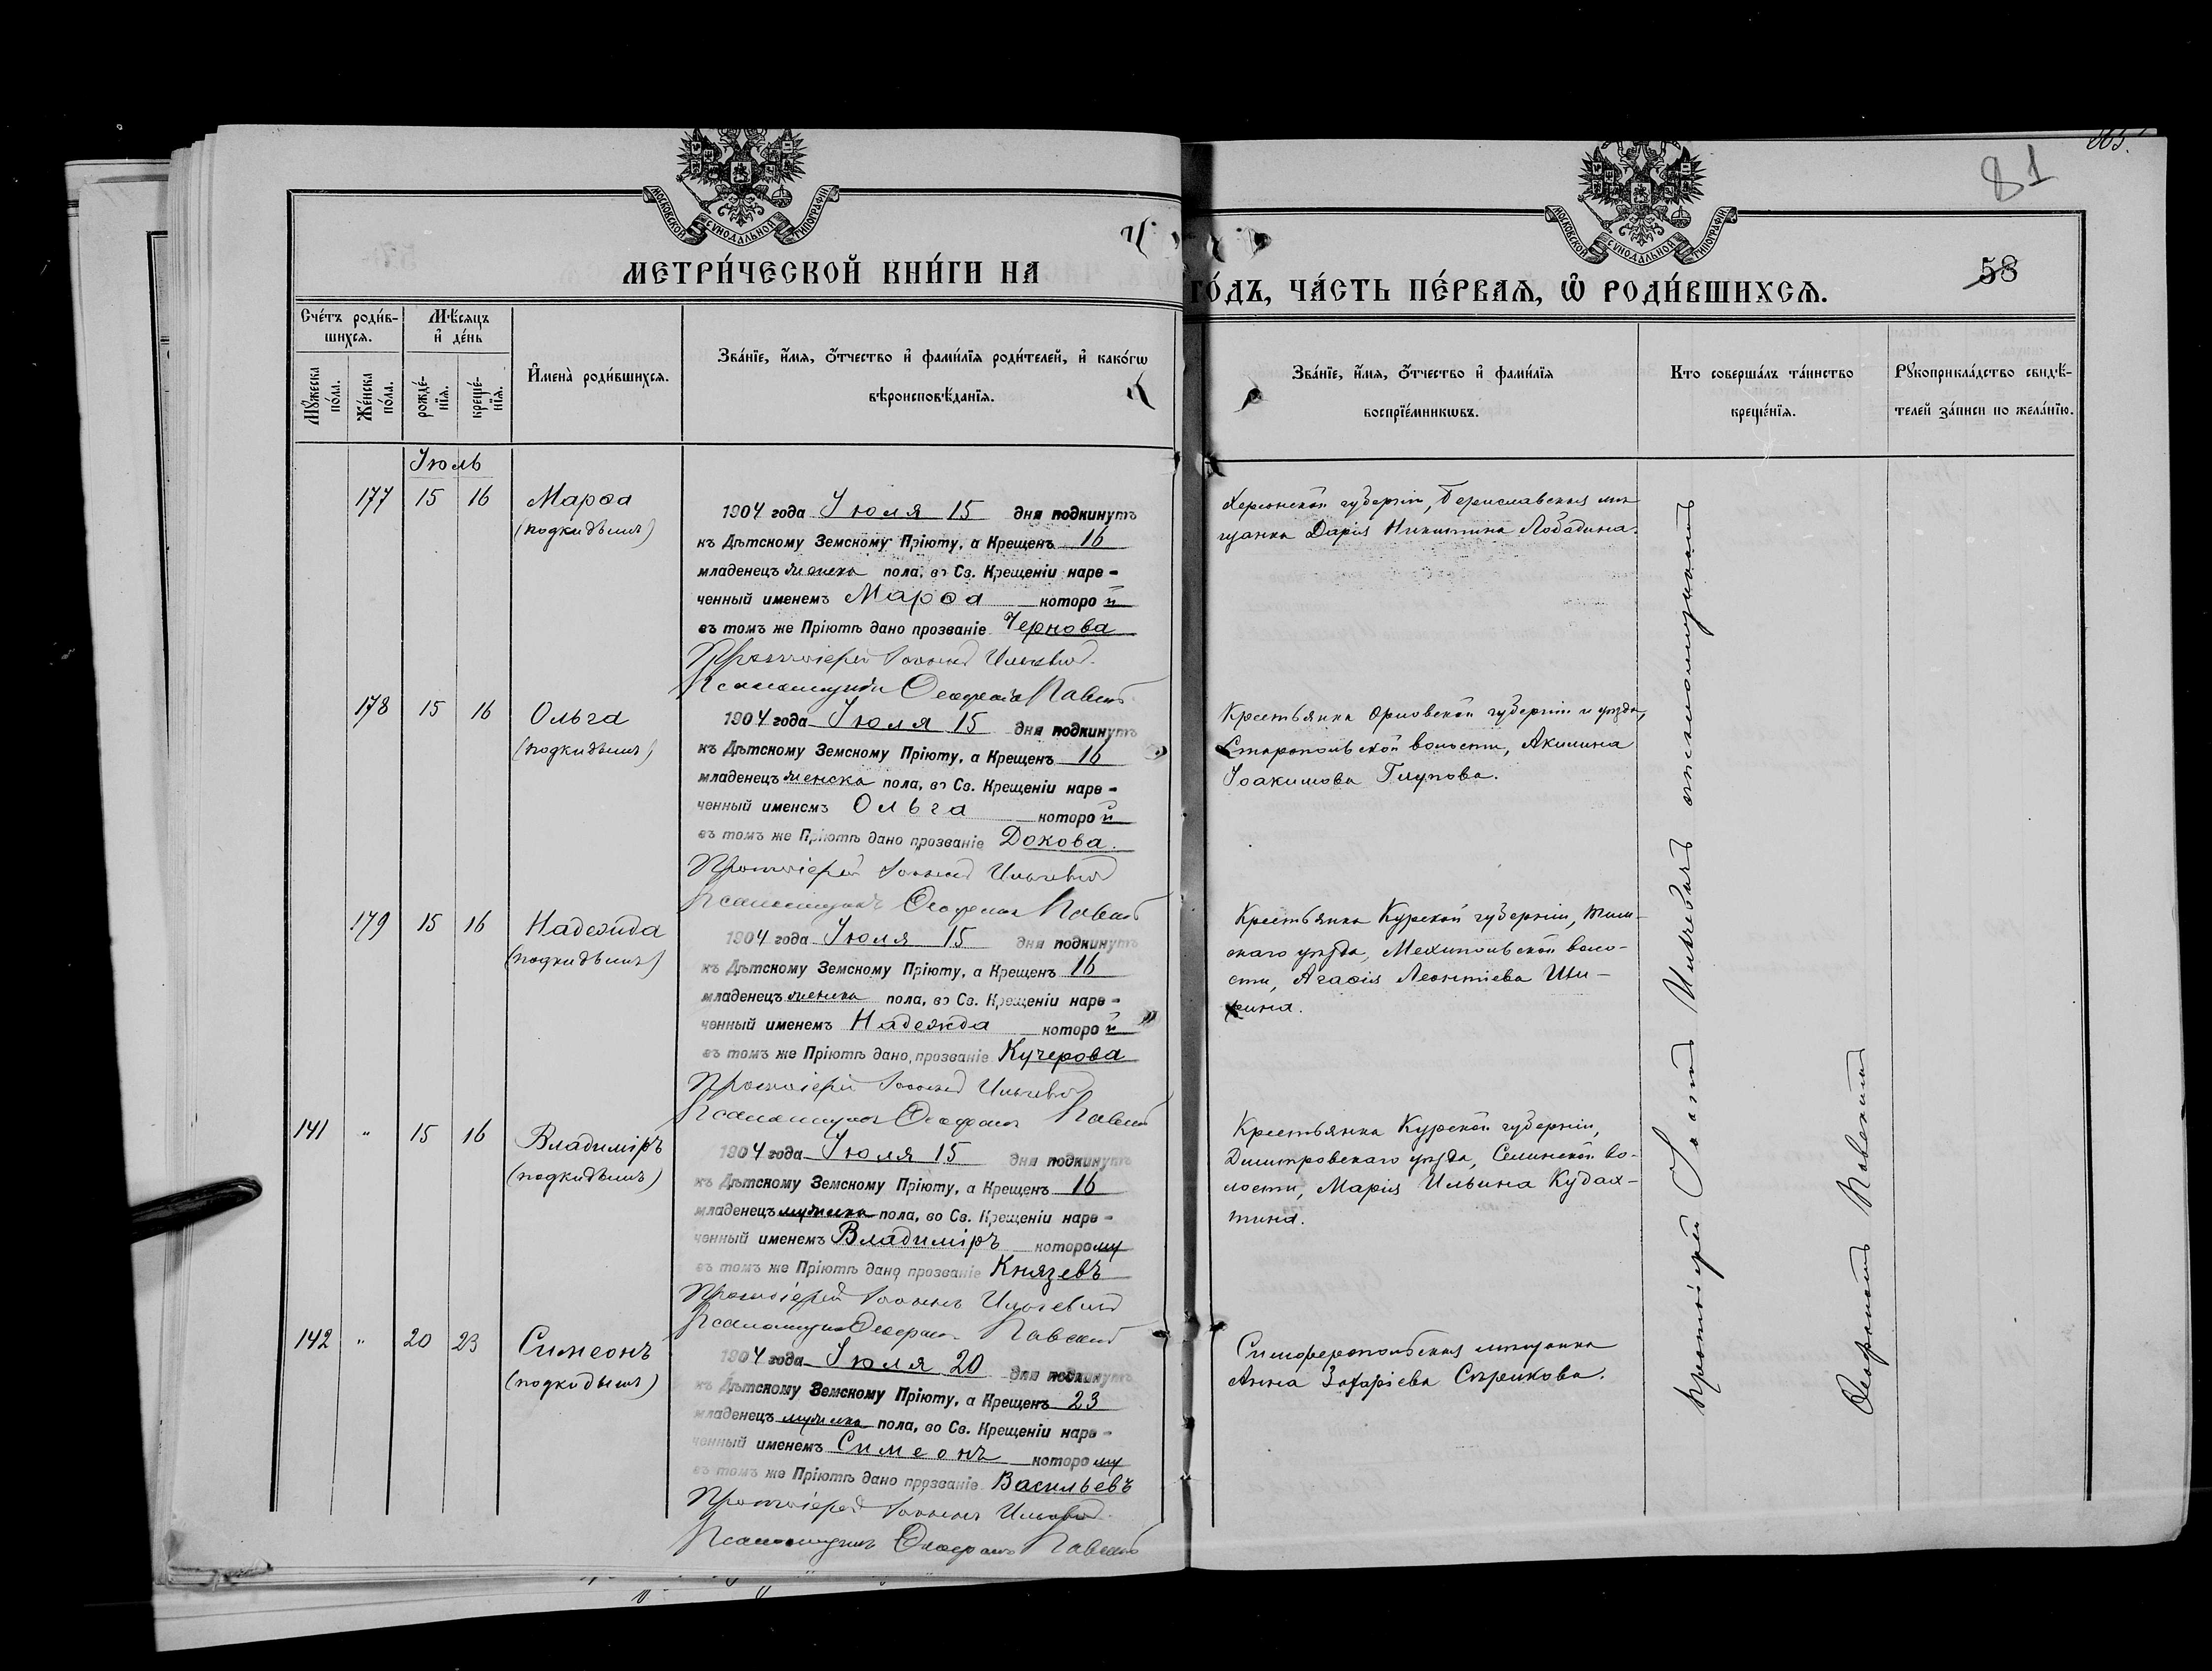 865.
81
МОСКОВСКОЙ СѴНОДАЛЬНОЙ ТИПОГРАФІИ.
МОСКОВСКОЙ СѴНОДАЛЬНОЙ ТИПОГРАФІИ.
МЕТРИ́ЧЕСКОЙ КНИ́ГИ НА
ГО́ДЪ, ЧА́СТЬ ПЕ́РВАѦ, Ѡ РОДИ́ВШИХСѦ.
58
Сче́тъ роди́в-
шихсѧ.
Мꙋ́жеска по́ла.
Же́нска по́ла.
Мѣ́сѧцъ
и҆ де́нь
рожде́-
нїѧ.
креще́-
нїѧ.
И҆мена̀ роди́вшихсѧ.
Зва́нїе, и҆́мѧ, ѻ҆́тчество и҆ фами́лїѧ роди́телей, и҆ како́гѡ
вѣроисповѣ́данїѧ.
Зва́нїе, и҆́мѧ, ѻ҆́тчество и҆ фами́лїѧ
воспрїе́мникѡвъ.
Кто соверша́лъ та́инство
креще́нїѧ.
Рꙋкоприкла́дство свидѣ́-
телей за́писи по жела́нїю.
Іюль
177 15 16 Марѳа
(подкидышъ)
1904 года Іюля 15 дня подкинутъ
къ Дѣтскому Земскому Пріюту, а Крещенъ 16
младенецъ женска пола, во Св. Крещеніи наре-
ченный именемъ Марѳа которой
въ томъ же Пріютѣ дано прозваніе Чернова
Протоіерей Іоаннъ Ильчевичъ
Псаломщикъ Ѳеофанъ Павскій
Херсонской губерніи, Бериславская мѣ-
щанка Дарія Никитина Лободина.
178 15 16 Ольга
(подкидышъ)
1904 года Іюля 15 дня подкинутъ
къ Дѣтскому Земскому Пріюту, а Крещенъ 16
младенецъ женска пола, во Св. Крещеніи наре-
ченный именемъ Ольга которой
въ томъ же Пріютѣ дано прозваніе Докова.
Протоіерей Іоаннъ Ильчевичъ
Псаломщикъ Ѳеофанъ Павскій
Крестьянка Орловской губерніи и уѣзда,
волости, Акилина
Іоакимова Глупова.
179 15 16 Надежда
(подкидышъ)
1904 года Іюля 15 дня подкинутъ
къ Дѣтскому Земскому Пріюту, а Крещенъ 16
младенецъ женска пола, во Св. Крещеніи наре-
ченный именемъ Надежда которой
въ томъ же Пріютѣ дано прозваніе Кучерова
Протоіерей Іоаннъ Ильчевичъ
Псаломщикъ Ѳеофанъ Павскій
Крестьянка Курской губерніи, Тим-
скаго уѣзда, воло-
сти, Агаѳія Леонтіева
141 " 15 16 Владиміръ
(подкидышъ)
1904 года Іюля 15 дня подкинутъ
къ Дѣтскому Земскому Пріюту, а Крещенъ 16
младенецъ мужска пола, во Св. Крещеніи наре-
ченный именемъ Владиміръ которому
въ томъ же Пріютѣ дано прозваніе Князевъ
Протоіерей Іоаннъ Ильчевичъ
Псаломщикъ Ѳеофанъ Павскій
Крестьянка Курской губерніи,
Димитровскаго уѣзда, Селинской во-
лости, Марія Ильина
142 " 20 23 Симеонъ
(подкидышъ)
1904 года Іюля 20 дня подкинутъ
къ Дѣтскому Земскому Пріюту, а Крещенъ 23
младенецъ мужска пола, во Св. Крещеніи наре-
ченный именемъ Симеонъ которому
въ томъ же Пріютѣ дано прозваніе Васильевъ
Протоіерей Іоаннъ Ильчевичъ
Псаломщикъ Ѳеофанъ Павскій
Симферопольская мѣщанка
Анна Захаріева Стрѣлкова.
Протоіерей Іоаннъ Ильчевичъ съ псаломщикомъ
Ѳеофаномъ Павскимъ